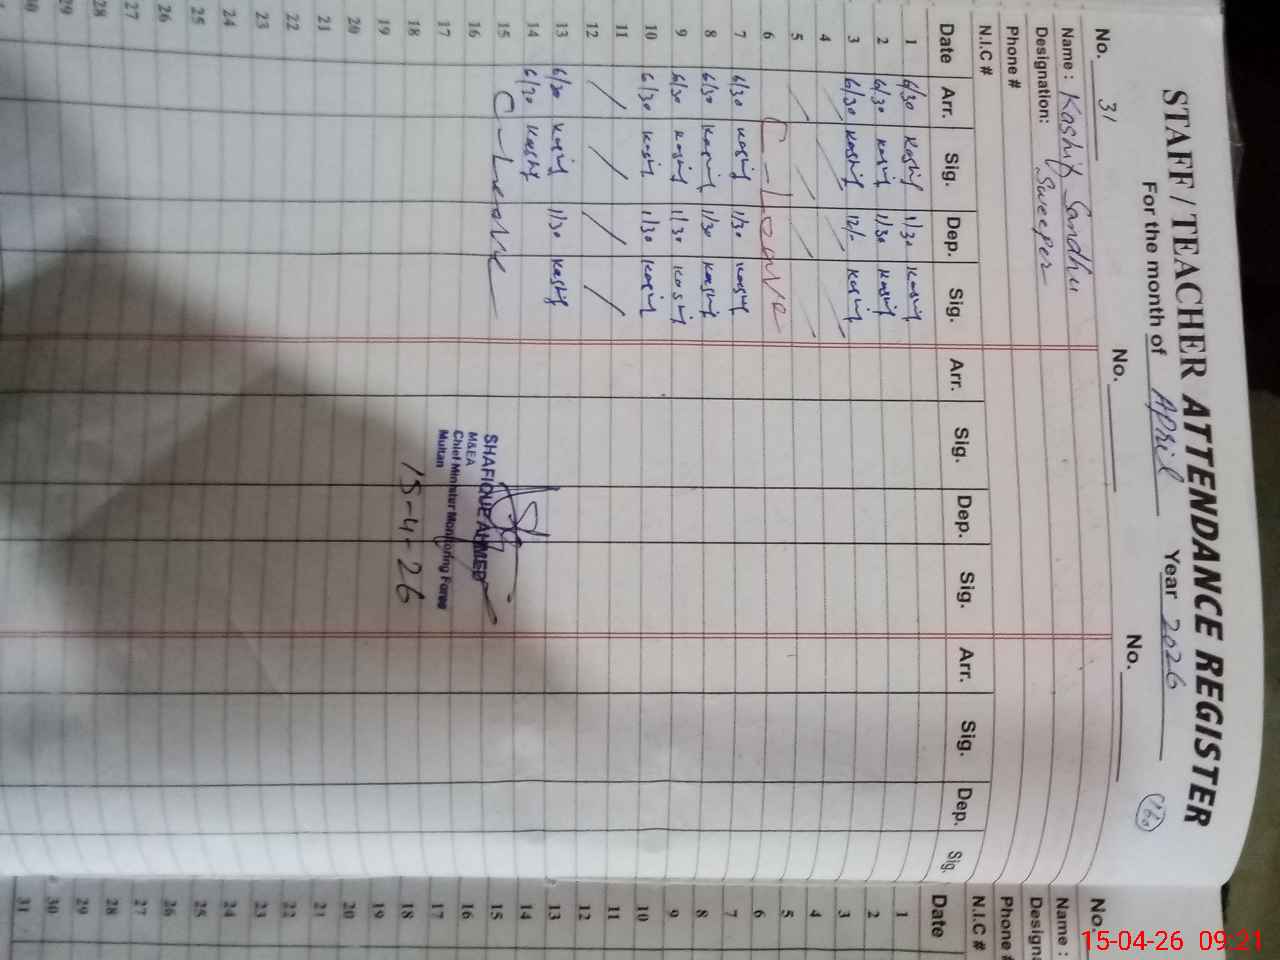 STAFF / TEACHER ATTENDANCE REGISTER
For the month of April Year 2026
160
No. 31 No. No.
Name : Kashif Sandhu
Designation: Sweeper
Phone #
N.I.C #
Date Arr. Sig. Dep. Sig. Arr. Sig. Dep. Sig. Arr. Sig. Dep. Sig.
1 6/30 Kashif 1/30 Kashif
2 6/30 Kashif 1/30 Kashif
3 6/30 Kashif 12/- Kashif
4
5
6 C-Leave
7 6/30 Kashif 1/30 Kashif
8 6/30 Kashif 1/30 Kashif
9 6/30 Kashif 1/30 Kashif
10 6/30 Kashif 1/30 Kashif
11
12
13 6/30 Kashif 1/30 Kashif
14 6/30 Kashif
15 C-Leave
16
17
18
19
20
21
22
23
24
25
26
27
28
29
30
SHAFIQUE AHMED
M&EA
Chief Minister Monitoring Force
Multan
15-4-26
No.
Name :
Designa
Phone #
N.I.C #
Date
1
2
3
4
5
6
7
8
9
10
11
12
13
14
15
16
17
18
19
20
21
22
23
24
25
26
27
28
29
30
31
15-04-26 09:21